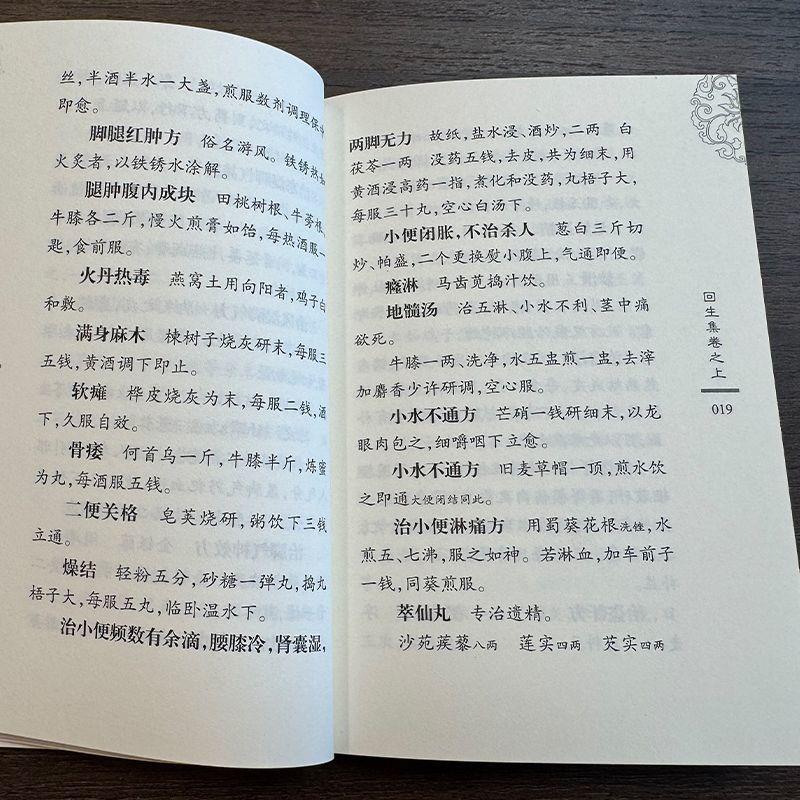 丝，半酒半水一大盏，煎服数剂调理保
即愈。
脚腿红肿方　俗名游风。铁锈热
火炙者，以铁锈水涂解。
腿肿腹内成块　田桃树根、牛蒡根、
牛膝各二斤，慢火煎膏如饴，每热酒服一
匙，食前服。
火丹热毒　燕窝土用向阳者，鸡子白
和敷。
满身麻木　楝树子烧灰研末，每服三
五钱，黄酒调下即止。
软瘫　桦皮烧灰为末，每服二钱，酒
下，久服自效。
骨痿　何首乌一斤，牛膝半斤，炼蜜
为丸，每酒服五钱。
二便关格　皂荚烧研，粥饮下三钱
立通。
燥结　轻粉五分，砂糖一弹丸，捣丸
梧子大，每服五丸，临卧温水下。
治小便频数有余滴，腰膝冷，肾囊湿，
两脚无力　故纸，盐水浸、酒炒，二两　白
茯苓一两　没药五钱，去皮，共为细末，用
黄酒浸高药一指，煮化和没药，丸梧子大，
每服三十九，空心白汤下。
小便闭胀，不治杀人　葱白三斤切
炒、帕盛，二个更换熨小腹上，气通即便。
癃淋　马齿苋捣汁饮。
地髓汤　治五淋、小水不利、茎中痛
欲死。
牛膝一两、洗净，水五盅煎一盅，去滓
加麝香少许研调，空心服。
小水不通方　芒硝一钱研细末，以龙
眼肉包之，细嚼咽下立愈。
小水不通方　旧麦草帽一顶，煎水饮
之即通大便闭结同此。
治小便淋痛方　用蜀葵花根洗锉，水
煎五、七沸，服之如神。若淋血，加车前子
一钱，同葵煎服。
萃仙丸　专治遗精。
沙苑蒺藜八两　莲实四两　芡实四两
回生集卷之上
019